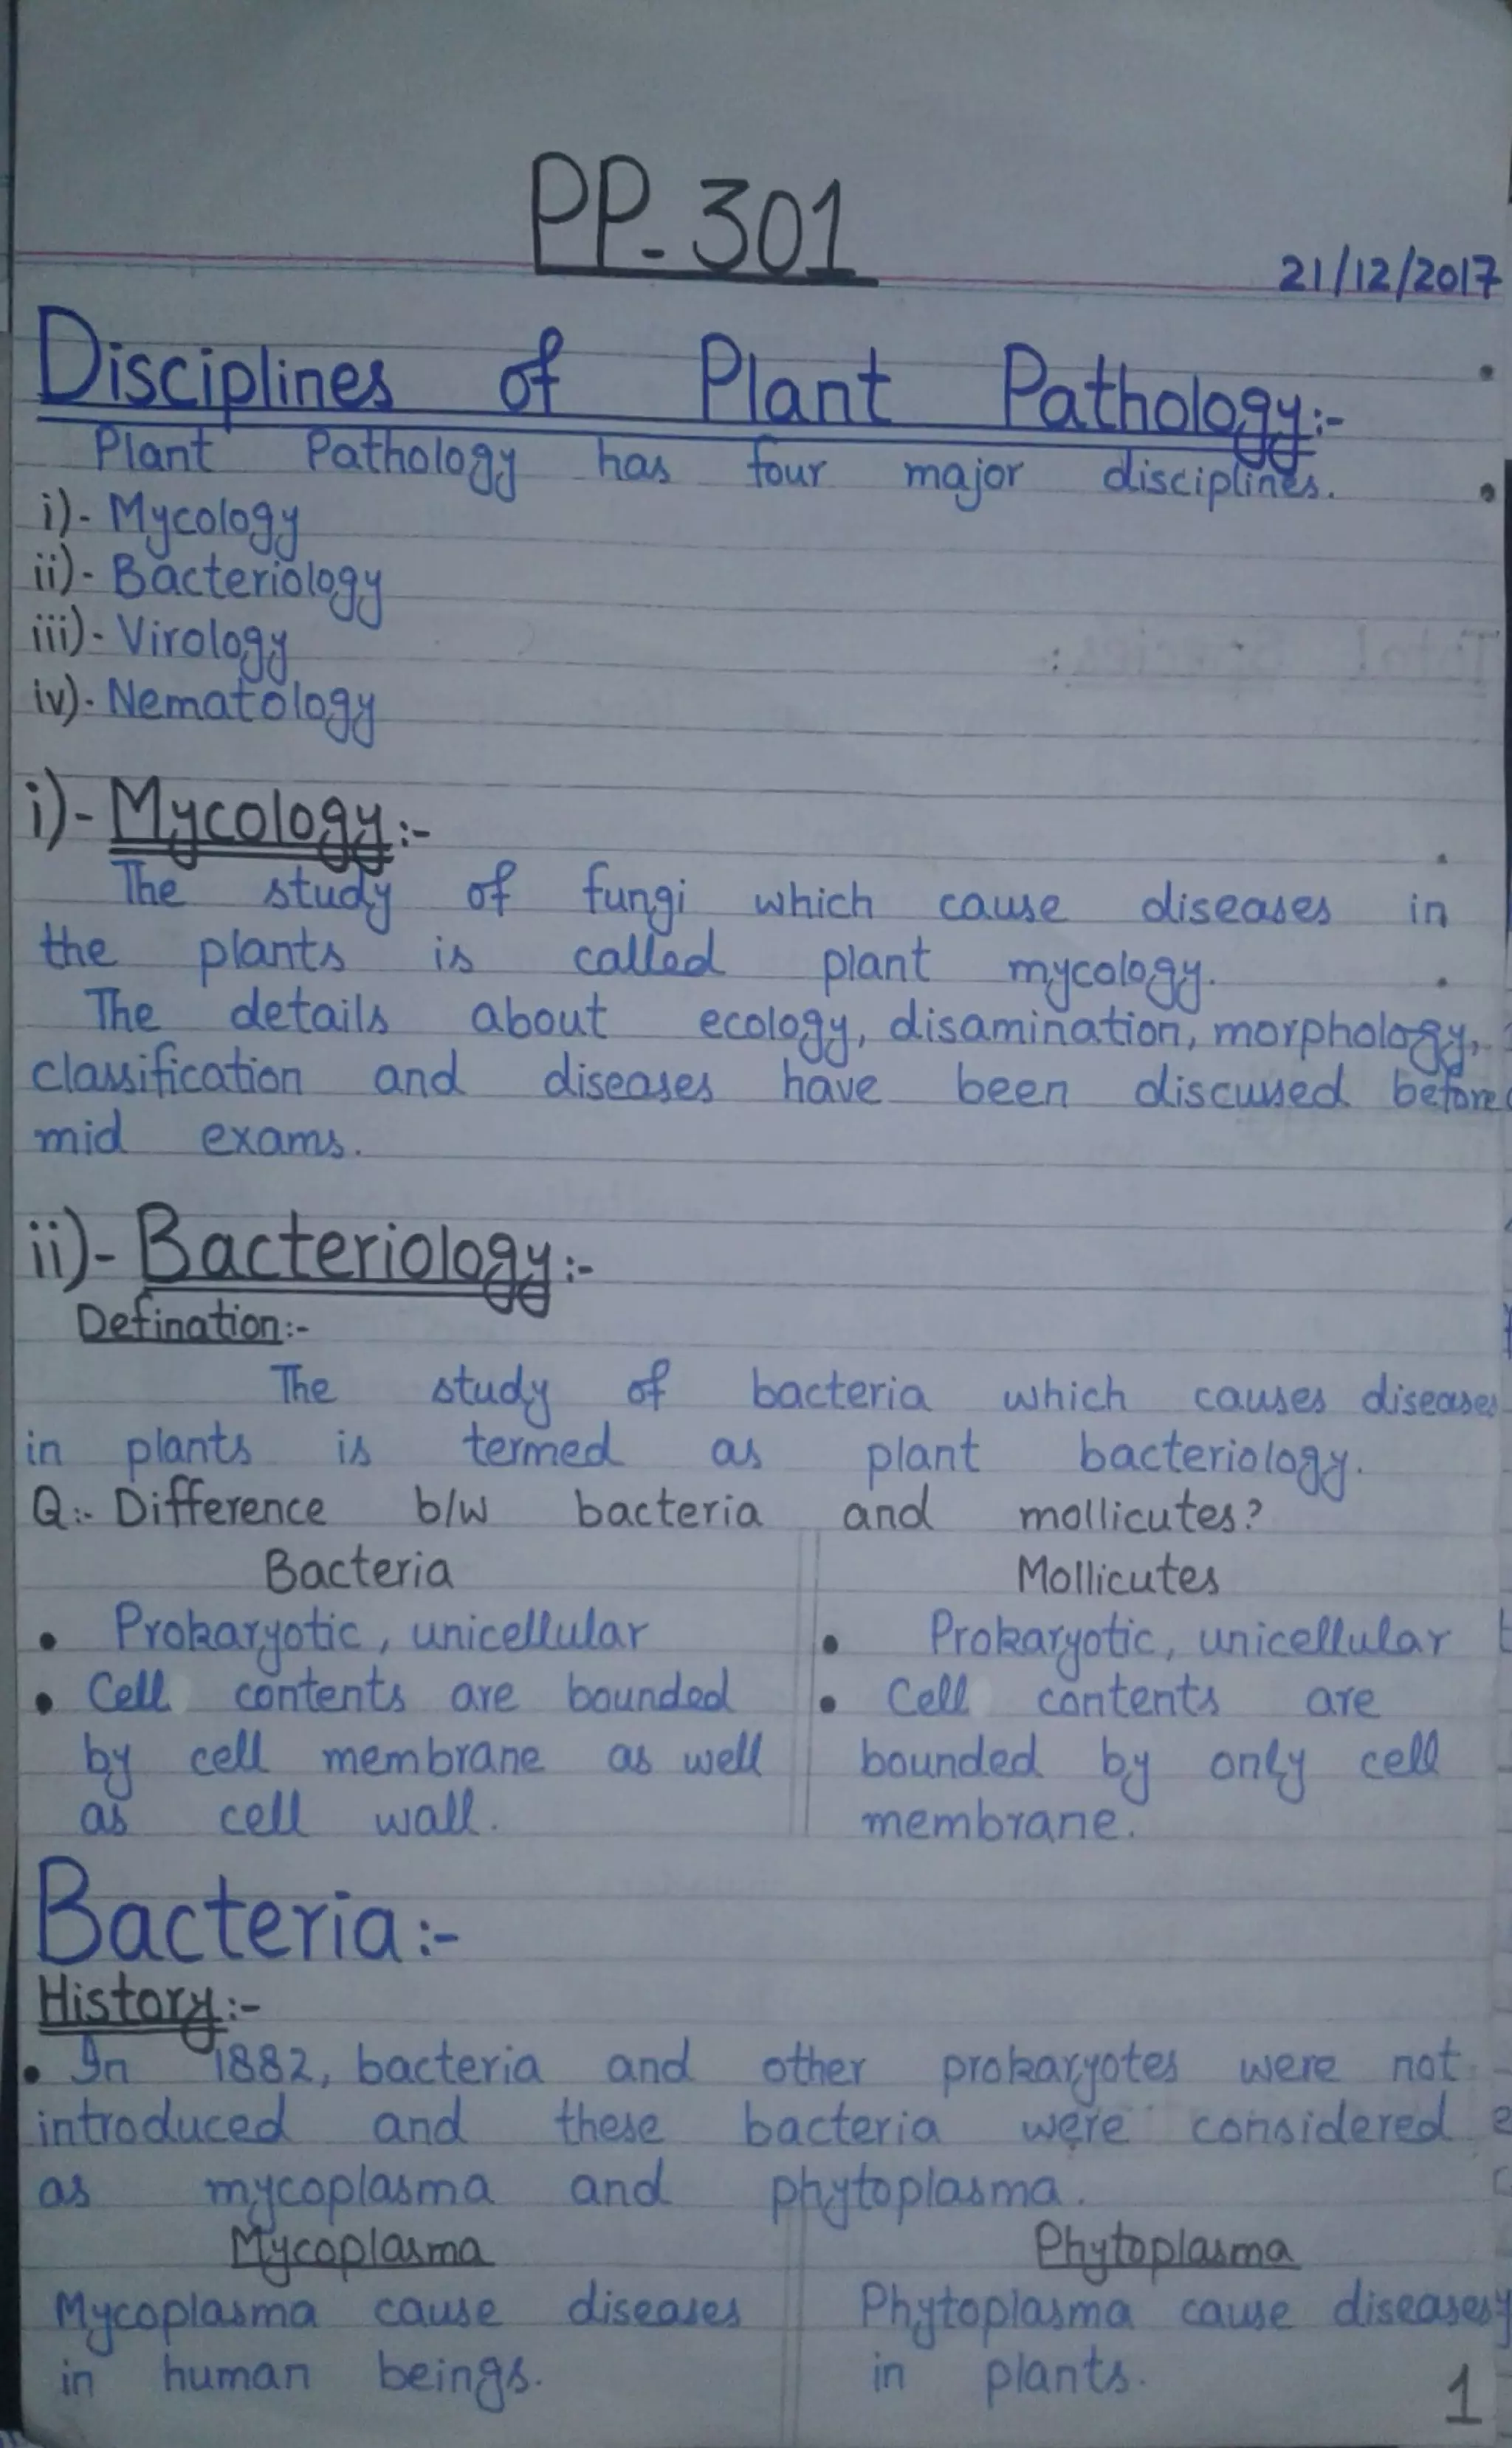 PP-301
21/12/2017
Disciplines of Plant Pathology:-
Plant Pathology has four major disciplines.
i)- Mycology
ii)- Bacteriology
iii)- Virology
iv)- Nematology
i)- Mycology:-
The study of fungi which cause diseases in
the plants is called plant mycology.
The details about ecology, disamination, morphology,
classification and diseases have been discussed before
mid exams.
ii)- Bacteriology:-
Defination:-
The study of bacteria which causes diseases
in plants is termed as plant bacteriology.
Q:- Difference b/w bacteria and mollicutes?
Bacteria Mollicutes
• Prokaryotic, unicellular • Prokaryotic, unicellular
• Cell contents are bounded • Cell contents are
by cell membrane as well bounded by only cell
as cell wall. membrane.
Bacteria:-
History:-
• In 1882, bacteria and other prokaryotes were not
introduced and these bacteria were considered
as mycoplasma and phytoplasma.
Mycoplasma Phytoplasma
Mycoplasma cause diseases Phytoplasma cause diseases
in human beings. in plants.
1